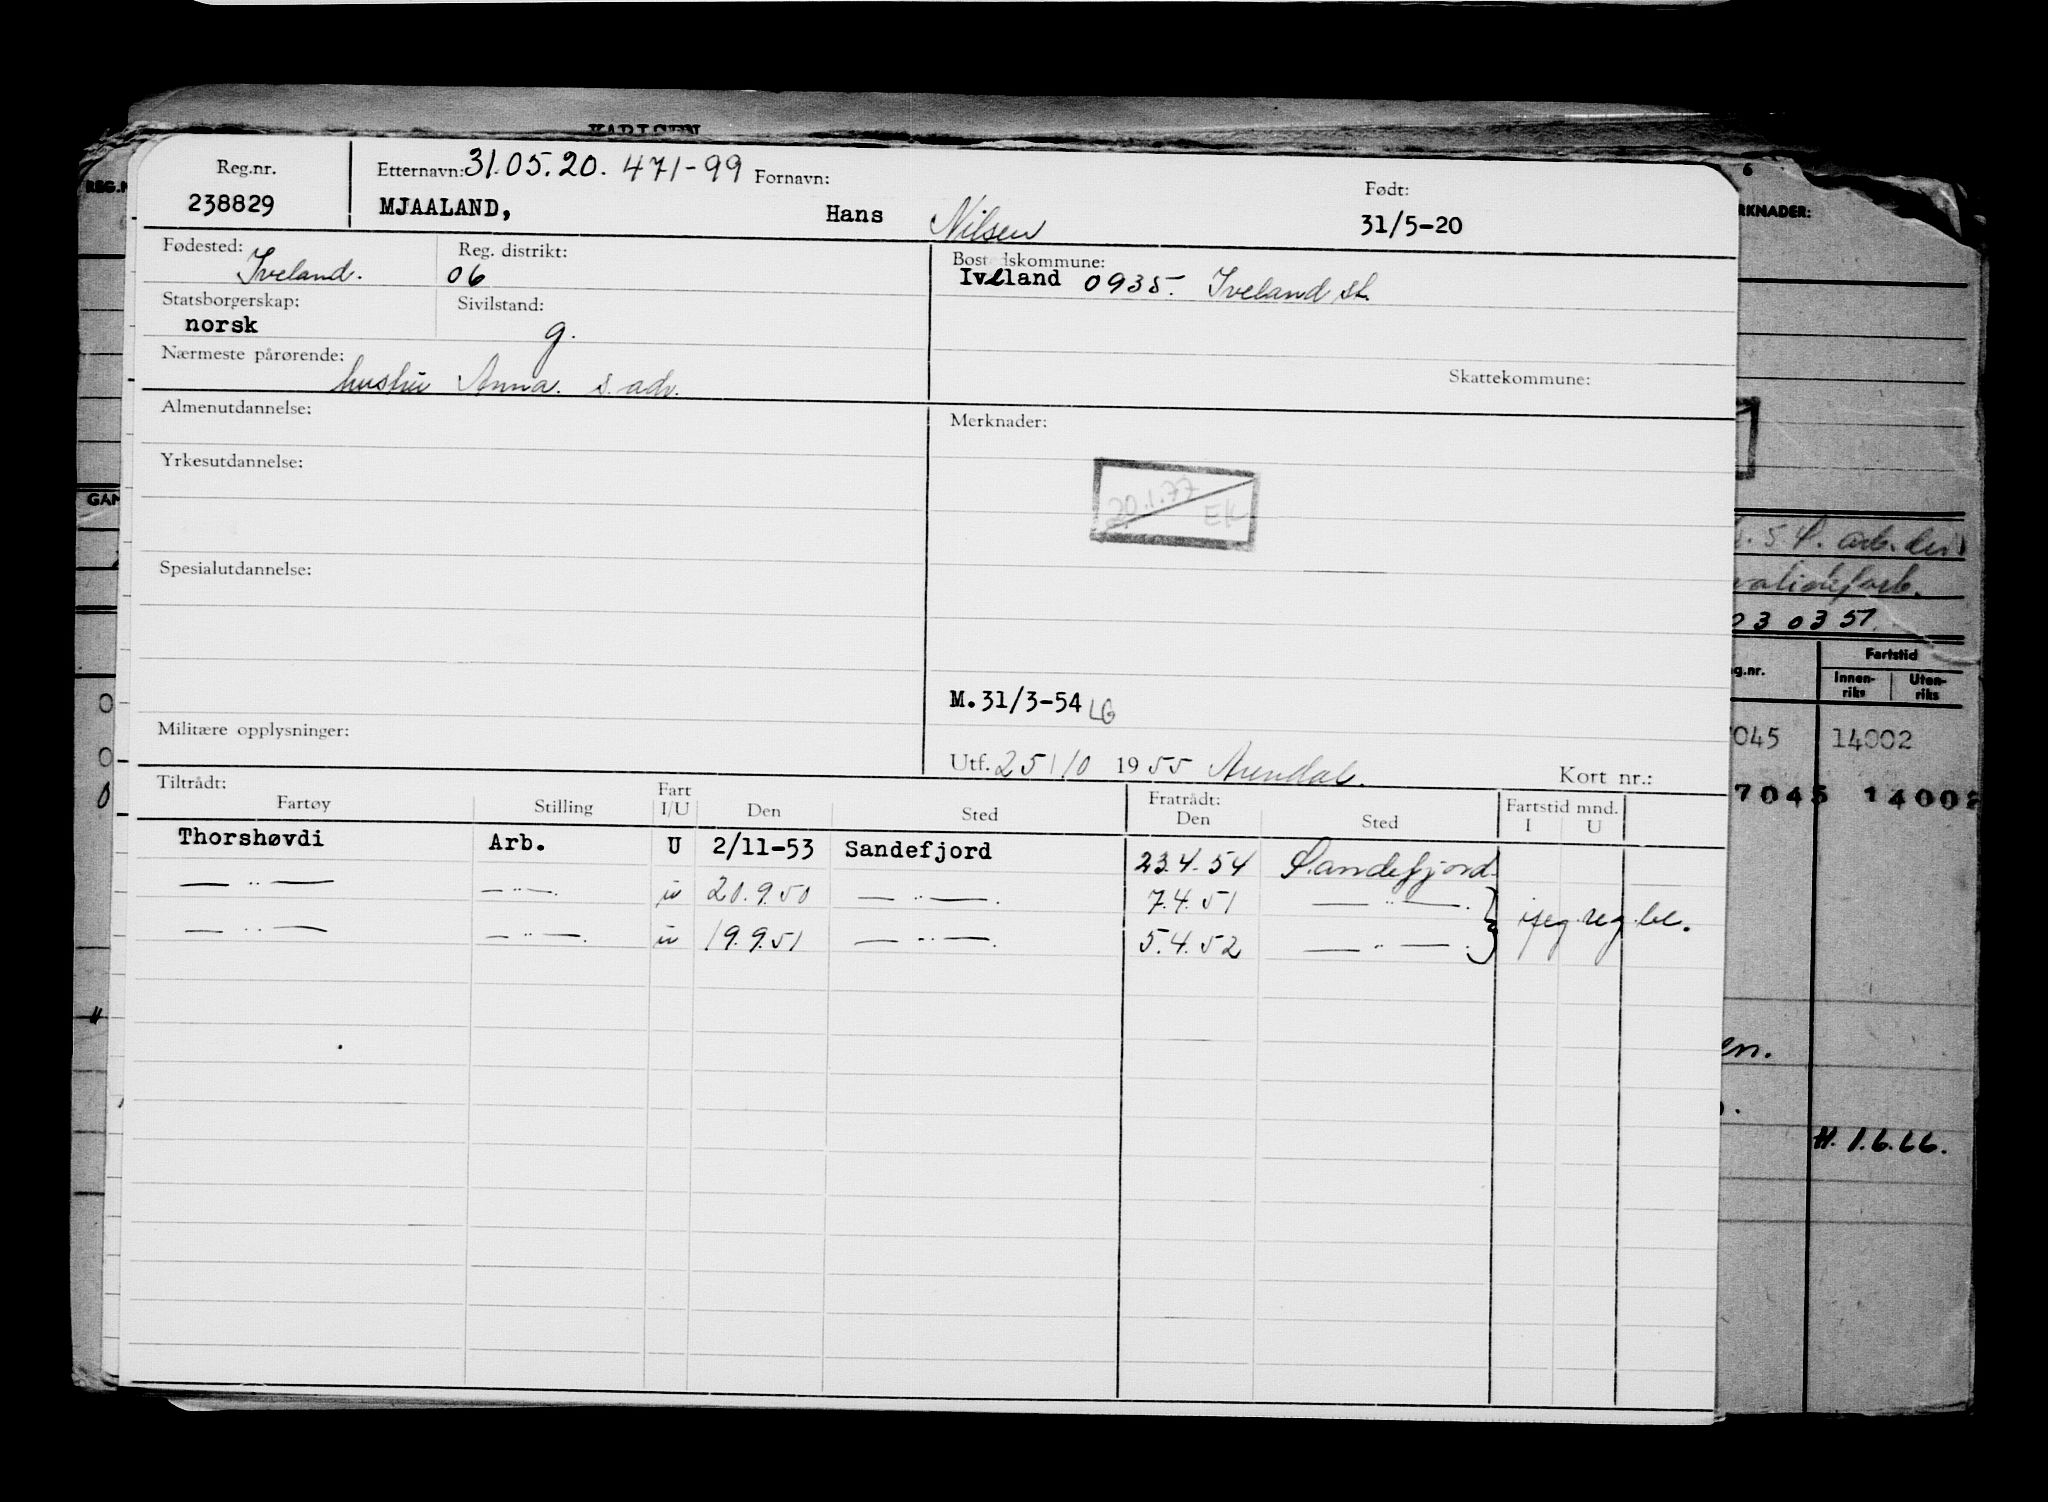 KARLSEN
Reg.nr. Etternavn: 31.05.20. 471-99 Fornavn: Født:
238829 MJAALAND, Hans Nilsen 31/5-20
Fødested: Iveland. Reg. distrikt: 06 Bostedskommune: Iveland 0935. Iveland st.
Statsborgerskap: norsk Sivilstand: g.
Nærmeste pårørende: hustru Anna. s. adr. Skattekommune:
Almenutdannelse: Merknader:
Yrkesutdannelse:
20.1.77 EK
Spesialutdannelse:
M.31/3-54 LG
Militære opplysninger: Utf. 25/10 1955 Arendal. Kort nr.:
Tiltrådt: Fartøy Stilling Fart I/U Den Sted Fratrådt: Den Sted Fartstid mnd. I U
Thorshøvdi Arb. U 2/11-53 Sandefjord 23.4.54 Sandefjord.
— " — — " —. u 20.9.50 — " —. 7.4.51 — " —.
— " — — " —. u 19.9.51 — " —. 5.4.52 — " —. } iføg. reg. be.
REG.N
GAN
6
RKNADER:
03 03 51.
g.nr. Fartstid
Innen-riks Uten-riks
7045 14002
7045 14002
en.
H. 1.6.66.